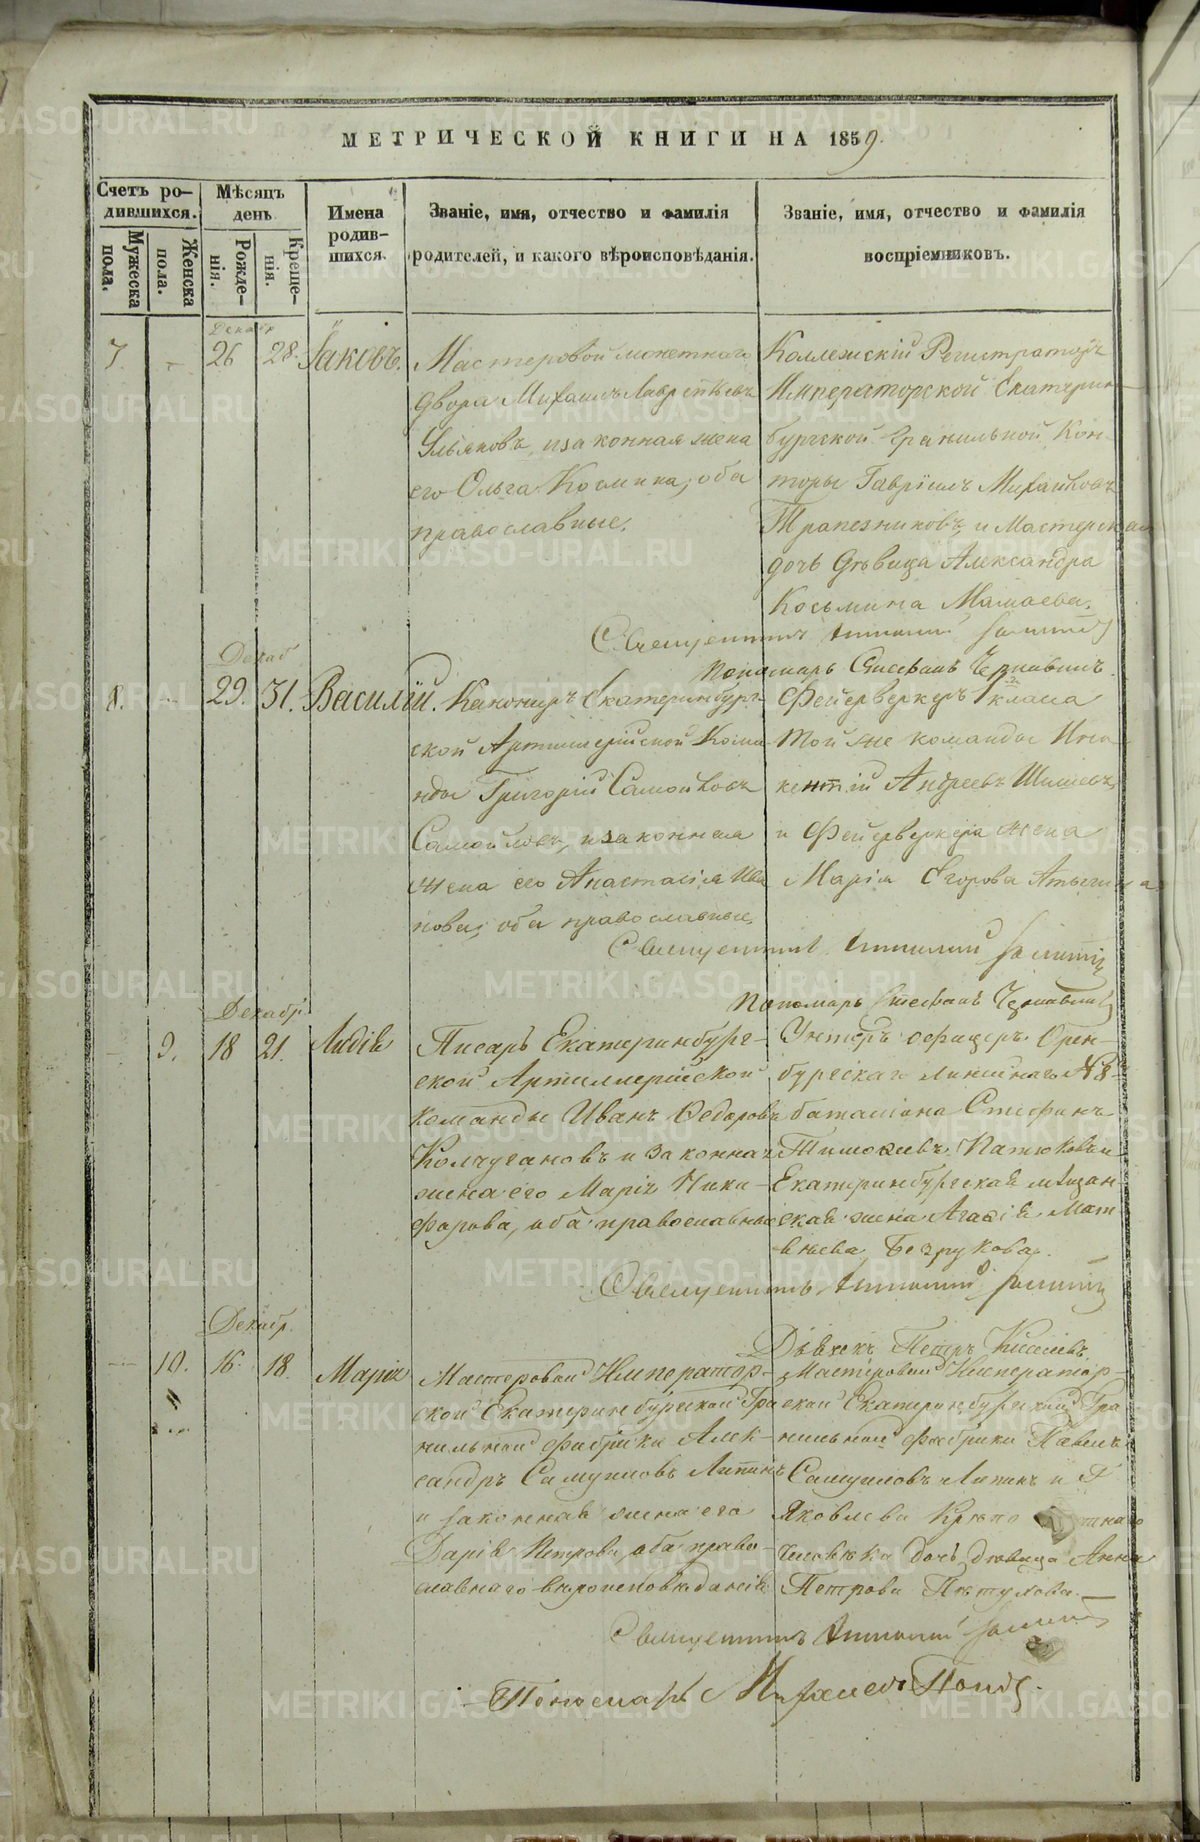 МЕТРИЧЕСКОЙ КНИГИ НА 1859.
Счетъ ро-
дившихся.
Мужеска
пола.
Женска
пола.
Мѣсяцъ
день
Рожде-
нія.
Креще-
нія.
Имена
родив-
шихся.
Званіе, имя, отчество и фамилія
родителей, и какого вѣроисповѣданія.
Званіе, имя, отчество и фамилія
воспріемниковъ.
Декабр
7. — 26 28. Іаковъ.
Мастеровой монетнаго
двора Михаилъ Лаврентьевъ
Ульяновъ, и законная жена
его Ольга Космина, оба
православные.
Коллежскій Регистраторъ
Императорской Екатерин-
бургской Гранильной Кон-
торы Гавріилъ Михайловъ
Трапезниковъ и Мастерская
дочь дѣвица Александра
Косьмина Мамаева.
Священникъ
Пономарь Стефанъ
Декаб
8. — 29. 31. Василій.
Канониръ Екатеринбург-
ской Артиллерійской Кома-
нды Григорій Самойловъ
Самойловъ, и законная
жена его Анастасія Ива
нова, оба православные.
Фейерверкеръ класса
Той же команды Инно
кентій Андреевъ
и Фейерверкера жена
Марія Егорова
Священникъ
Пономарь Стефанъ
Декабр.
— 9. 18 21. Лидія
Писарь Екатеринбург-
ской Артиллерійской
команды Иванъ Ѳедоровъ
Колчугановъ и законная
жена его Марія Ники-
форова, оба православные
Унтеръ офицеръ Орен-
бургскаго линейнаго №
баталіона Стефанъ
Тимоѳеевъ Патюковъ и
Екатеринбургская мѣщан
ская жена Агаѳія Мат
вѣева Безрукова.
Священникъ
Дьячекъ Петръ Киселевъ.
Декабр.
— 10. 16. 18. Марія
Мастеровой Император-
ской Екатеринбургской Гра
нильной фабрики Алек-
сандръ Самуиловъ Липинъ
и законная жена его
Дарія Петрова, оба право-
славнаго вѣроисповѣданія.
Мастеровой Император-
ской Екатеринбургской Гра
нильной фабрики Павелъ
Самуиловъ Липинъ и
Яковлева
человѣка дочь дѣвица Анна
Петрова Пѣтухова.
Священникъ
Пономарь Поповъ.
METRIKI.GASO-URAL.RU